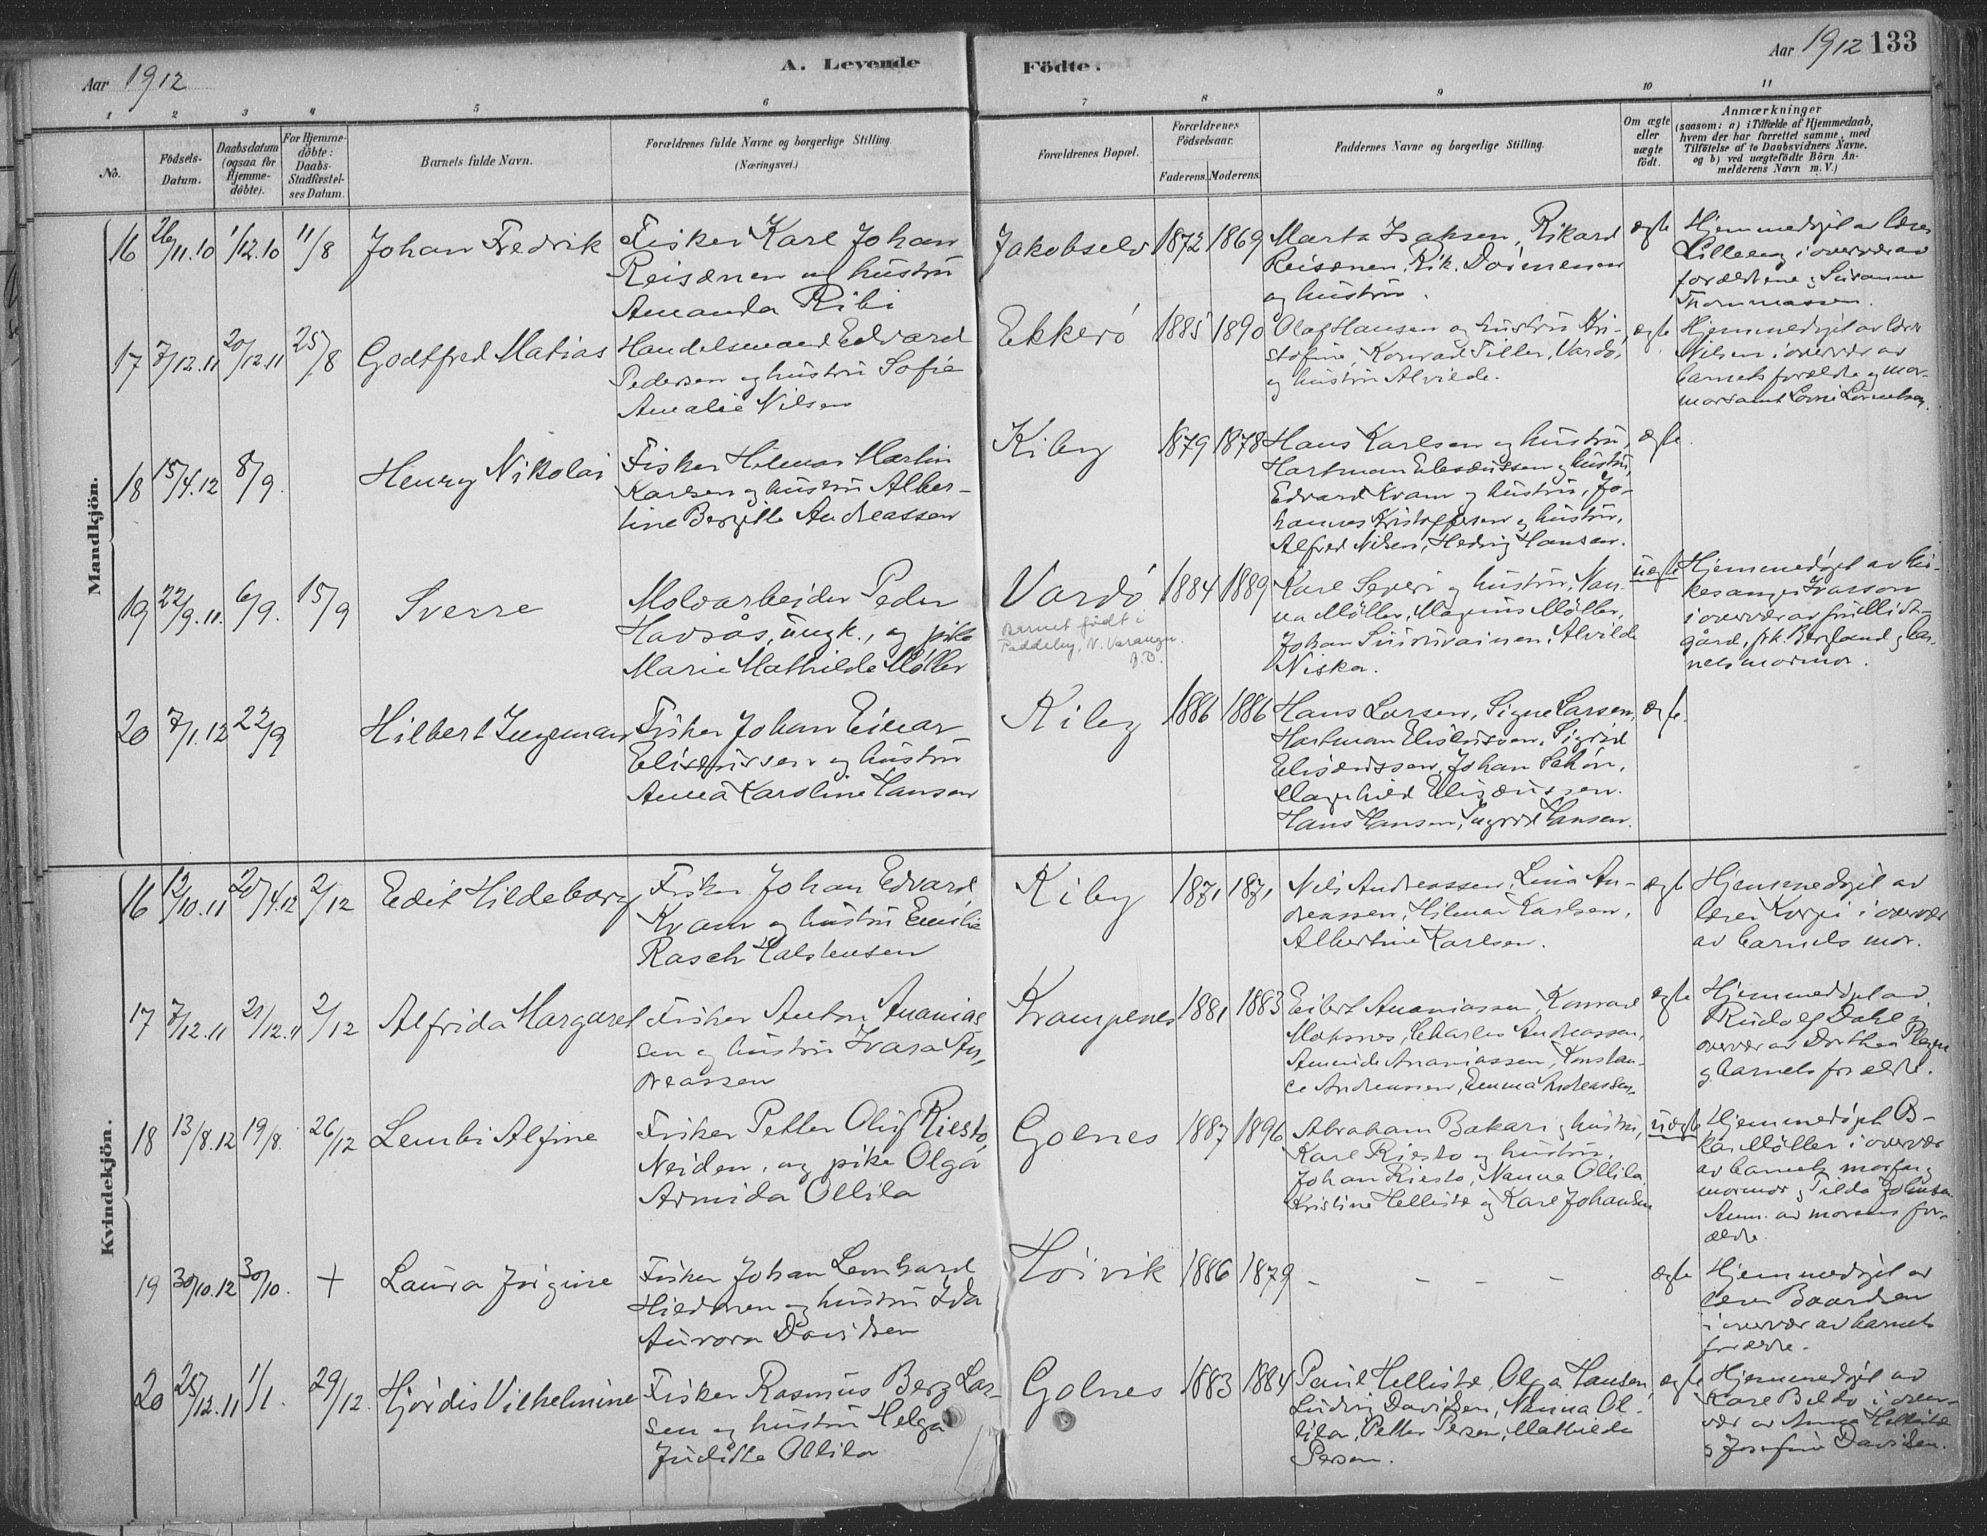 Aar 1912
A. Levende
Födte.
Aar 1912 133
1 2 3 4 5 6 7 8 9 10 11
No.
Födsels-
Datum.
Daabsdatum
(ogsaa for
Hjemme-
döbte).
For Hjemme-
döbte:
Daabs-
Stadfæstel-
ses Datum.
Barnets fulde Navn.
Forældrenes fulde Navne og borgerlige Stilling
(Næringsvei.)
Forældrenes Bopæl.
Forældrenes
Födselsaar.
Faderens. Moderens.
Faddernes Navne og borgerlige Stilling.
Om ægte
eller
uægte
födt.
Anmærkninger
(saasom: a) i Tilfælde af Hjemmedaab,
hvem der har forrettet samme, med
Tilföielse af to Daabsvidners Navne,
og b) ved uægtefödte Börn An-
melderens Navn m. V.)
Mandkjön.
16 26/11.10 1/12.10 11/8 Johan Fredrik
Fisker Karl Johan
Reisænen og hustru
Amanda Ribi
Jakobselv 1872 1869
Marta Isaksen, Rikard
Reisænen, Rik.
og hustru.
ægte
Hjemmedøpt av lærer
Lilleeng i overvær av
forældrene, Susanne
Thommassen.
17 7/12.11 20/12.11 25/8 Godtfred Matias
Handelsmand Edvard
Pedersen og hustru Sofie
Amalie Nilsen
Ekkerö 1885 1890
Olaf Hansen og hustru Kri-
stofine, Konrad Tiller, Vardö,
og hustru Alvilde.
ægte
Hjemmedøpt av lærer
Nilsen i overvær av
barnets forældre og mor-
mor samt
18 15/4.12 8/9. Henry Nikolai
Fisker Hilmar Martin
Karlsen og hustru Alber-
tine Bergitte Andreassen
Kiby 1879 1878
Hans Karlsen og hustru,
Hartman Elisæussen og hustru,
Edvard Kvam og hustru, Jo-
hannes Kristoffersen og hustru,
Alfred Nilsen, Hedvig Hansen.
ægte.
19 22/9.11. 6/9. 15/9 Sverre
Moloarbeider Peder
Havsås, ungk., og pike
Marie Mathilde Møller
Vardö 1884 1889
Barnet født i
Faddeby, N. Varanger.
Karl Seperi og hustru, Nan-
na Møller, Magnus Møller,
Johan Alvilde
Niska.
uægte
Hjemmedøpt av kir-
kesanger Ivarson
i overvær av fru Midt-
gård, frk. Bergland og bar-
nets mormor.
20 7/1.12 22/9 Hilbert Ingeman
Fisker Johan Einar
Elisæussen og hustru
Anna Karoline Hansen
Kiby 1886 1886
Hans Larsen, Signe Larsen,
Hartman Elisæussen, Sigrid
Elisæussen, Johan Schön,
Magnhild Elisæussen.
Hans Hansen, Ingrid Hansen.
ægte.
Kvindekjön.
16 12/10.11 20/4.12 2/12 Edit Hildeborg
Fisker Johan Edvard
Kvam og hustru Emilie
Rasch Halstensen
Kiby 1871 1871
Nils Andreassen, Lina An-
dreassen, Hilmar Karlsen,
Albertine Karlsen.
ægte
Hjemmedøpt av
lærer i overvær
av barnets mor.
17 7/12.11 21/12.11 2/12 Alfrida Margaret
Fisker Anton Ananias-
sen og hustru Ivara An-
dreassen
Krampenes 1881 1883
Eilert Ananiassen, Konrad
Mosnes, Charles Andreassen,
Ananiassen, Konstan-
ce Andreassen, Emma Andreassen.
ægte
Hjemmedøpt av
Rudolf Dahl i
overvær av Dorthea
og barnets forældre.
18 13/8.12 19/8. 26/12 Lembi Alfine
Fisker Petter Oluf Riesto,
Neiden, og pike Olga
Armida Ollila
Golnes 1887 1896
Abraham Bakari og hustru,
Karl Riesto og hustru,
Johan Riesto, Nanna Ollila,
Kristine Hellistö og Karl Johansen
uægte
Hjemmedøpt Os-
kar Møller i overvær
av barnets morfar og
mormor og Tilda Johnsen.
Anm. av morens for-
ældre.
19 30/10.12 30/10. + Laura Jörgine
Fisker Johan Lenhard
Hiedanen og hustru Ida
Aurora Davidsen
Höivik 1886 1879
- - - -
ægte
Hjemmedøpt av
lærer Baardsen
i overvær av barnets
forældre.
20 25/12.11 1/1. 29/12. Hjördis Vilhelmine
Fisker Rasmus Berg Lar-
sen og hustru Helga
Juditte Ollila
Golnes 1883 1884
Paul Hellistö, Olga Hansen,
Ludvig Davidsen, Nanna Ol-
lila, Petter Persen, Mathilde
Persen.
ægte
Hjemmedøpt av
Karl Beldo i over-
vær av Anna Hellistö
og Josefine Davidsen.